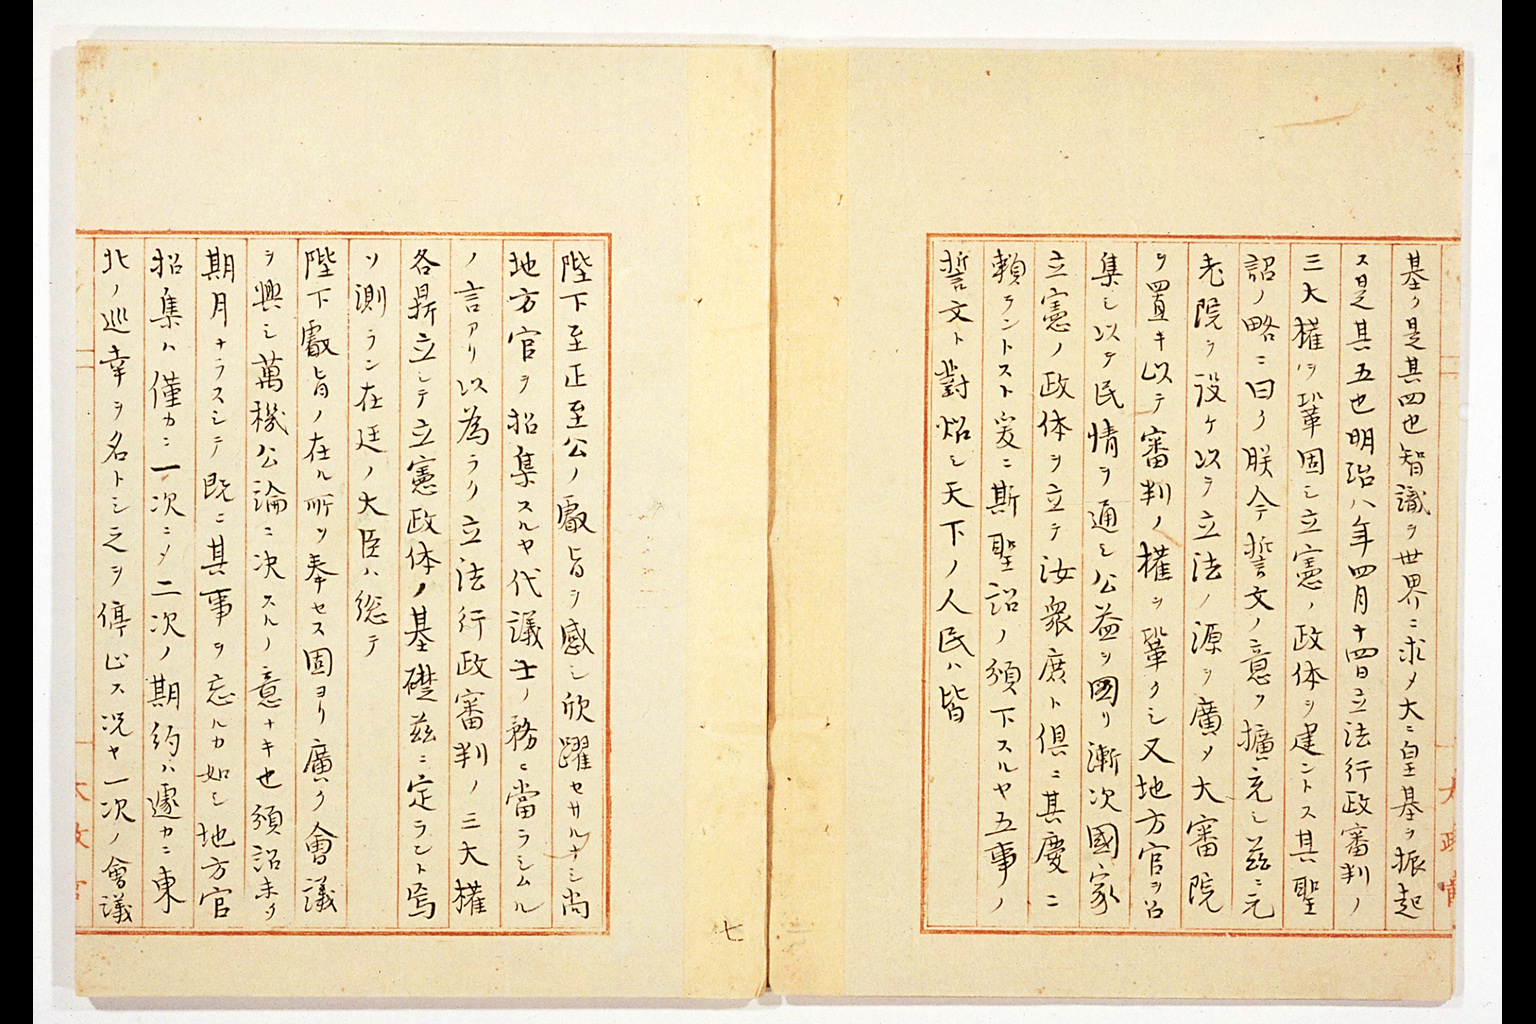 基ク是其四也智識ヲ世界ニ求メ大ニ皇基ヲ振起
ス是其五也明治八年四月十四日立法行政審判ノ
三大権ヲ鞏固シ立憲ノ政体ヲ建ントス其聖
詔ノ略ニ曰ク朕今誓文ノ意ヲ擴充シ茲ニ元
老院ヲ設ケ以テ立法ノ源ヲ廣メ大審院
ヲ置キ以テ審判ノ権ヲ鞏クシ又地方官ヲ召
集シ以テ民情ヲ通シ公益ヲ図リ漸次國家
立憲ノ政体ヲ立テ汝衆庶ト倶ニ其慶ニ
頼ラントスト爰ニ斯聖詔ノ頒下スルヤ五事ノ
誓文ト對炤シ天下ノ人民ハ皆
陛下至正至公ノ叡旨ヲ感シ欣躍セサルナシ尚
地方官ヲ招集スルヤ代議士ノ務ニ當ラシムル
ノ言アリ以為ラク立法行政審判ノ三大権
各鼎立シテ立憲政体ノ基礎茲ニ定ラント焉
ソ測ラン在廷ノ大臣ハ総テ
陛下叡旨ノ在ル所ヲ奉セス固ヨリ廣ク會議
ヲ興シ萬機公論ニ決スルノ意ナキ也頒詔未タ
期月ナラスシテ既ニ其事ヲ忘ルカ如シ地方官
招集ハ僅カニ一次ニメ二次ノ期約ハ遽カニ東
北ノ巡幸ヲ名トシ之ヲ停止ス况ヤ一次ノ會議
七
大政官
大政官